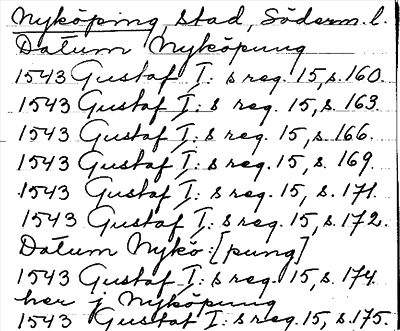 Nyköping, stad, Söderm. l.
Datum Nyköpung
1543 Gustaf I: s reg. 15, s. 160.
1543 Gustaf I: s reg. 15, s. 163.
1543 Gustaf I: s reg. 15, s. 166.
1543 Gustaf I: s reg. 15, s. 169.
1543 Gustaf I: s reg. 15, s. 171.
1543 Gustaf I: s reg. 15, s. 172.
Datum Nykö: [pung]
1543 Gustaf I: s reg. 15, s. 174.
her j Nyköpung
1543 Gustaf I: s reg. 15, s. 175.